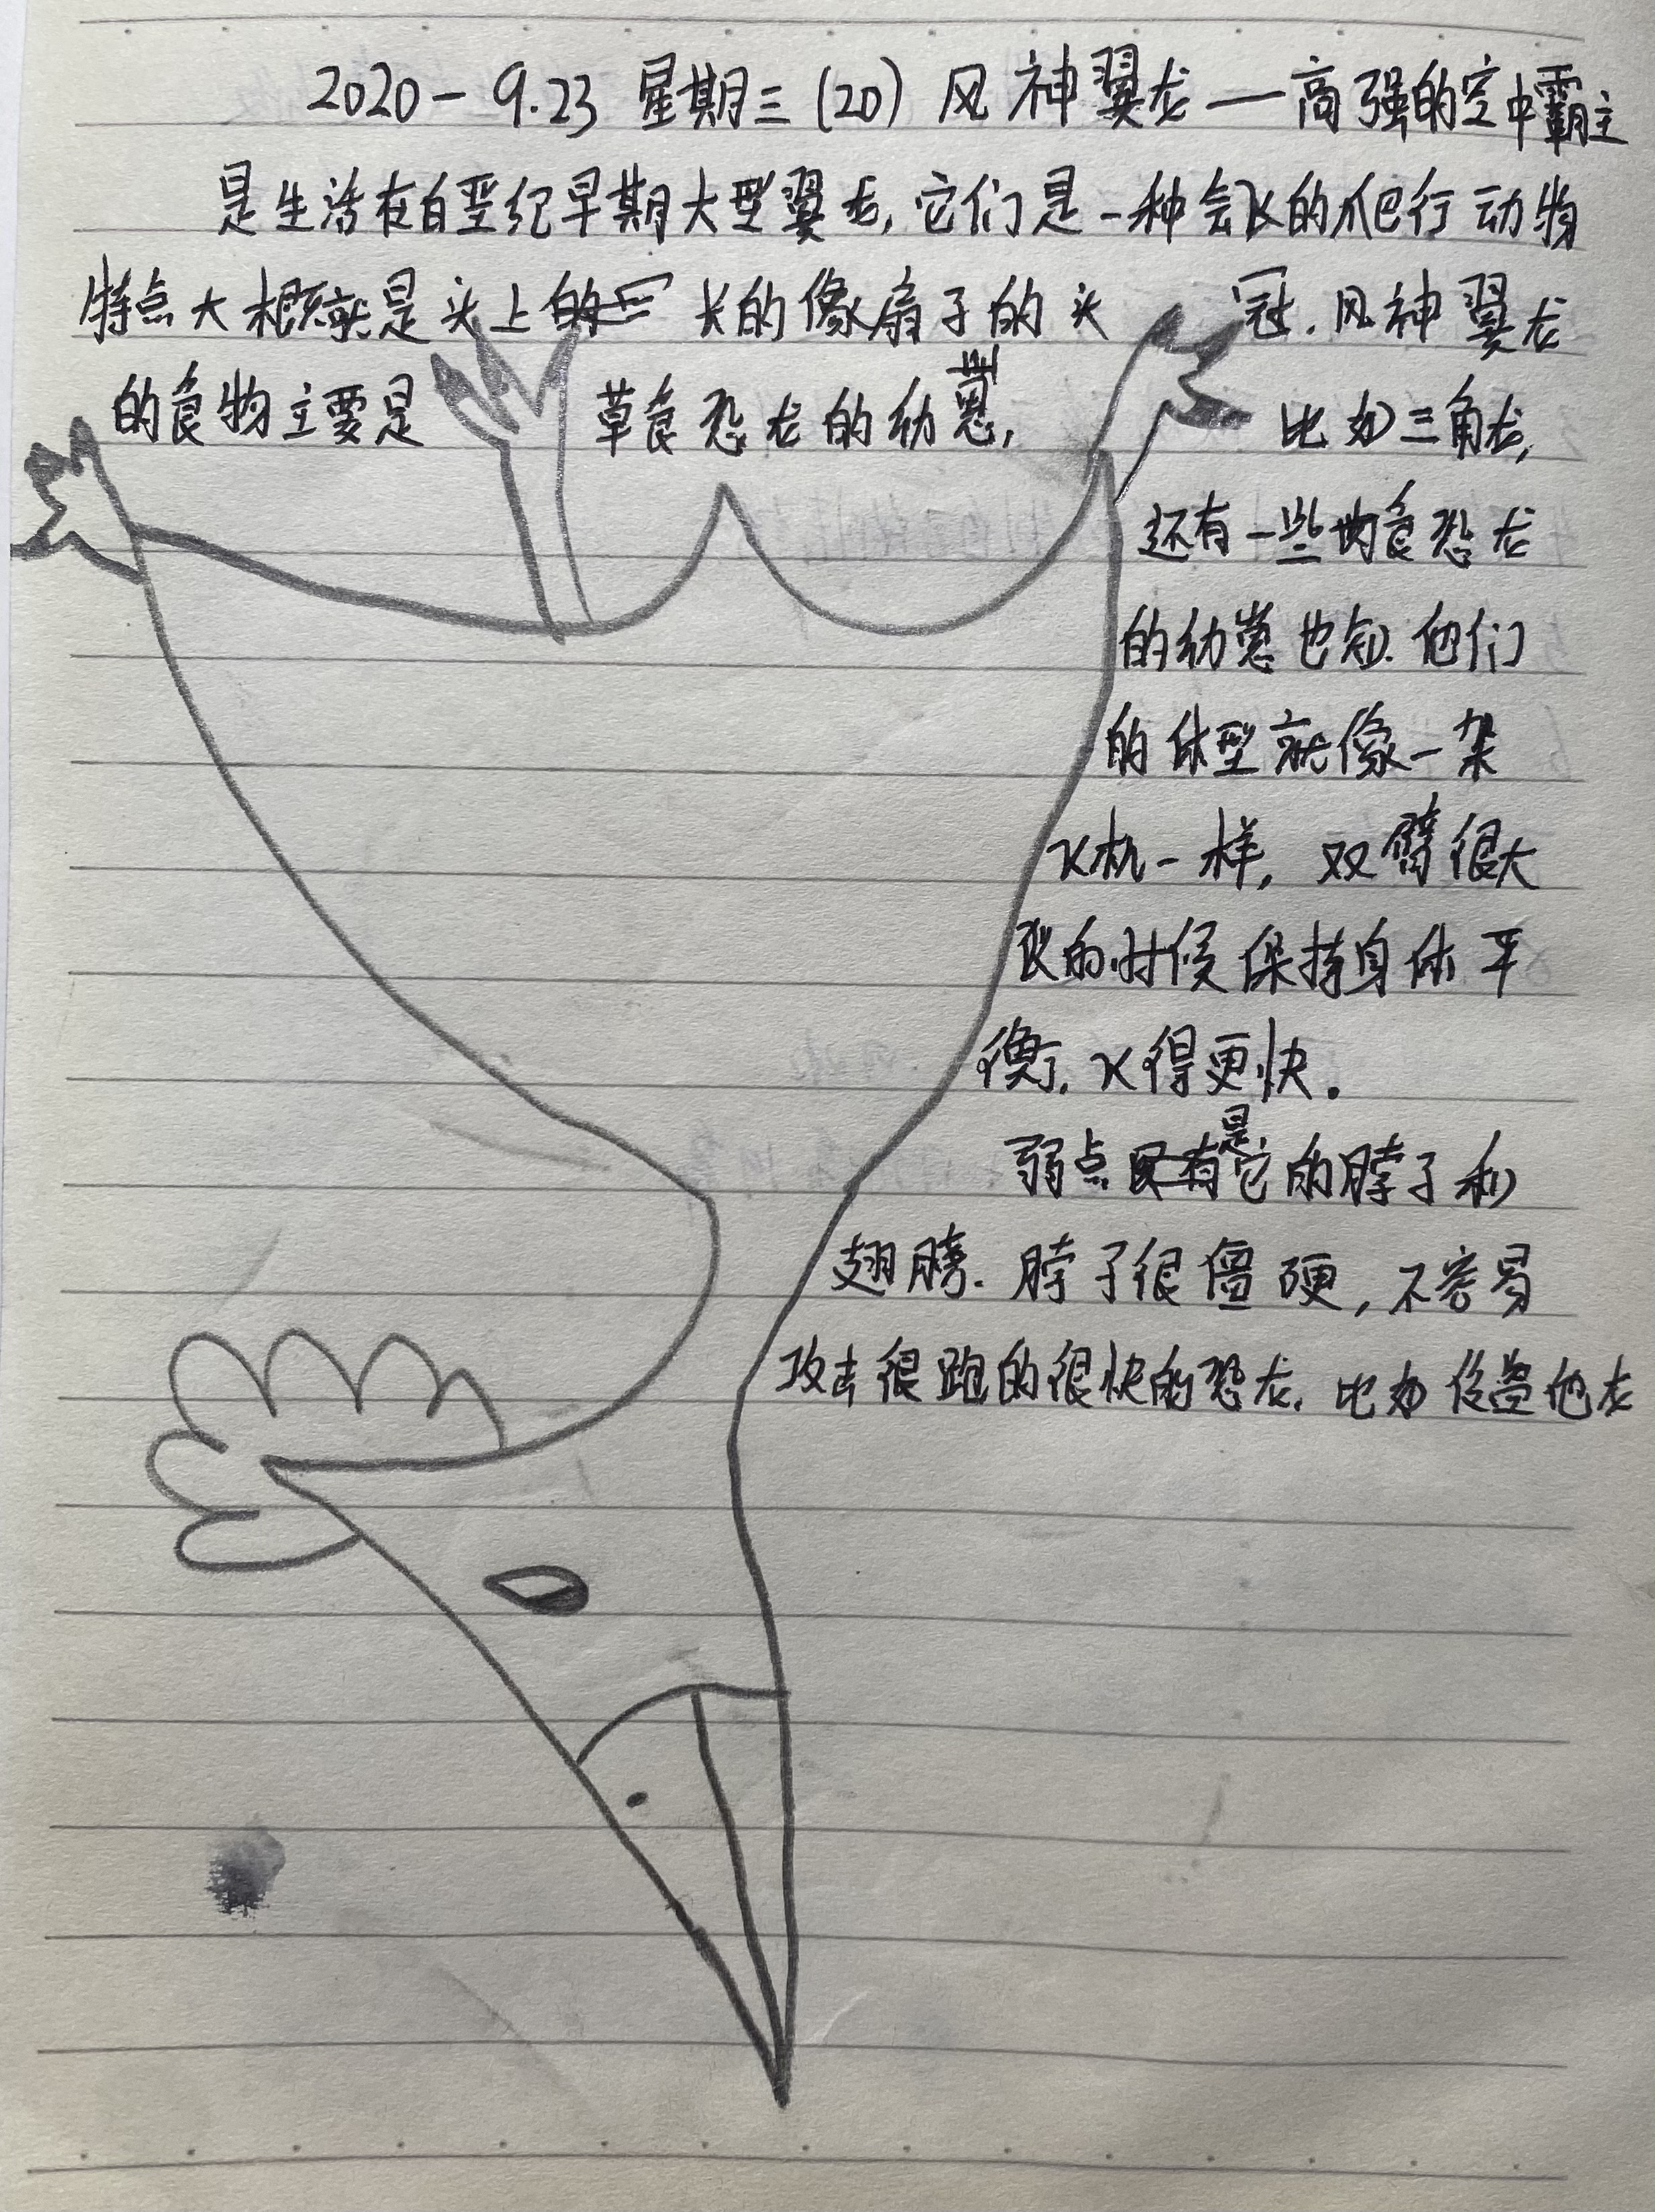 2020-9.23 星期三 (20) 风神翼龙——高强的空中霸主
是生活在白垩纪早期大型翼龙,它们是一种会飞的爬行动物
特点大概就是头上 长的像扇子的头冠.风神翼龙
的食物主要是草食恐龙的幼崽,比如三角龙,
还有一些肉食恐龙
的幼崽也知.他们
的体型就像一架
飞机一样,双臂很大
飞的时候保持身体平
衡.飞得更快.
弱点是它的脖子和
翅膀.脖子很僵硬,不容易
攻击很跑的很快的恐龙.比如 龙